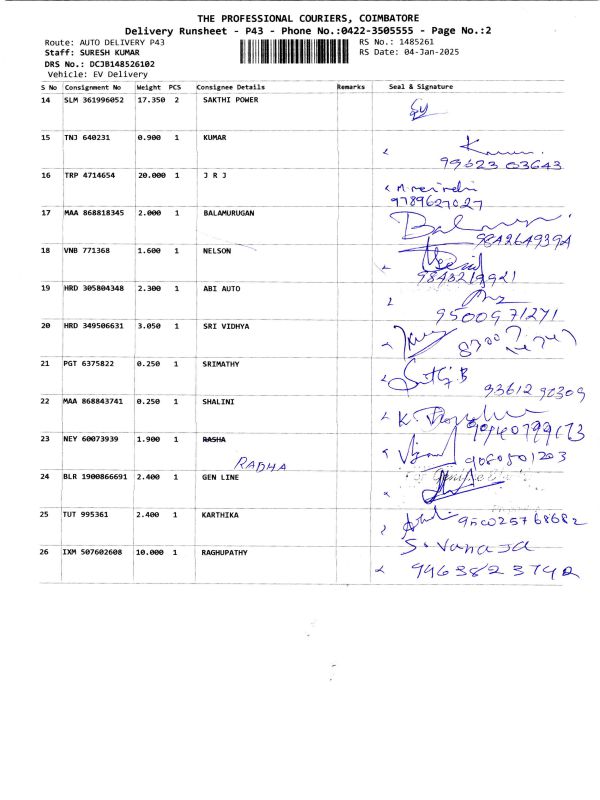 THE PROFESSIONAL COURIERS, COIMBATORE
Delivery Runsheet - P43 - Phone No.:0422-3505555 - Page No.:2
Route: AUTO DELIVERY P43 RS No.: 1485261
Staff: SURESH KUMAR RS Date: 04-Jan-2025
DRS No.: DCJB148526102
Vehicle: EV Delivery
S No Consignment No Weight PCS Consignee Details Remarks Seal & Signature
14 SLM 361996052 17.350 2 SAKTHI POWER
15 TNJ 640231 0.900 1 KUMAR
99623 03643
16 TRP 4714654 20.000 1 J R J
9789627027
17 MAA 868818345 2.000 1 BALAMURUGAN
9842649394
18 VNB 771368 1.600 1 NELSON
9843219921
19 HRD 305804348 2.300 1 ABI AUTO
9500971271
20 HRD 349506631 3.050 1 SRI VIDHYA
21 PGT 6375822 0.250 1 SRIMATHY
93612 90309
22 MAA 868843741 0.250 1 SHALINI
23 NEY 60073939 1.900 1 RASHA
RADHA
24 BLR 1900866691 2.400 1 GEN LINE
25 TUT 995361 2.400 1 KARTHIKA
9500257 68682
S. Vanaja
26 IXM 507602608 10.000 1 RAGHUPATHY
99638 23742